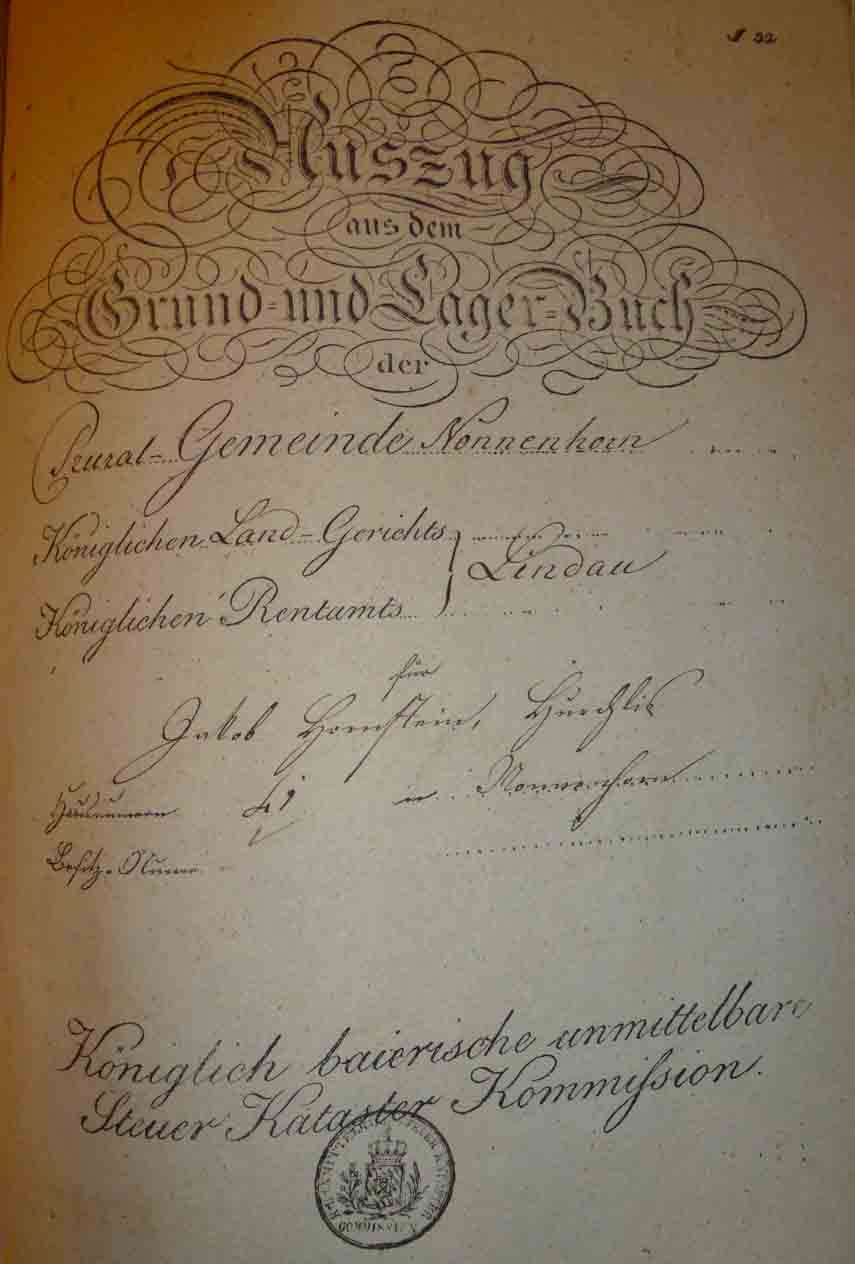 N 22
Auszug
aus dem
Grund- und Lager-Buch
der
Rural-Gemeinde Nonnenhorn
Königlichen Land-Gerichts
Lindau
Königlichen Rentamts
für
Jakob Hornstein,
Hausnumero in Nonnenhorn
Besitz-Numero
Königlich baierische unmittelbare
Steuer Kataster Kommiſsion.
COMMISSION